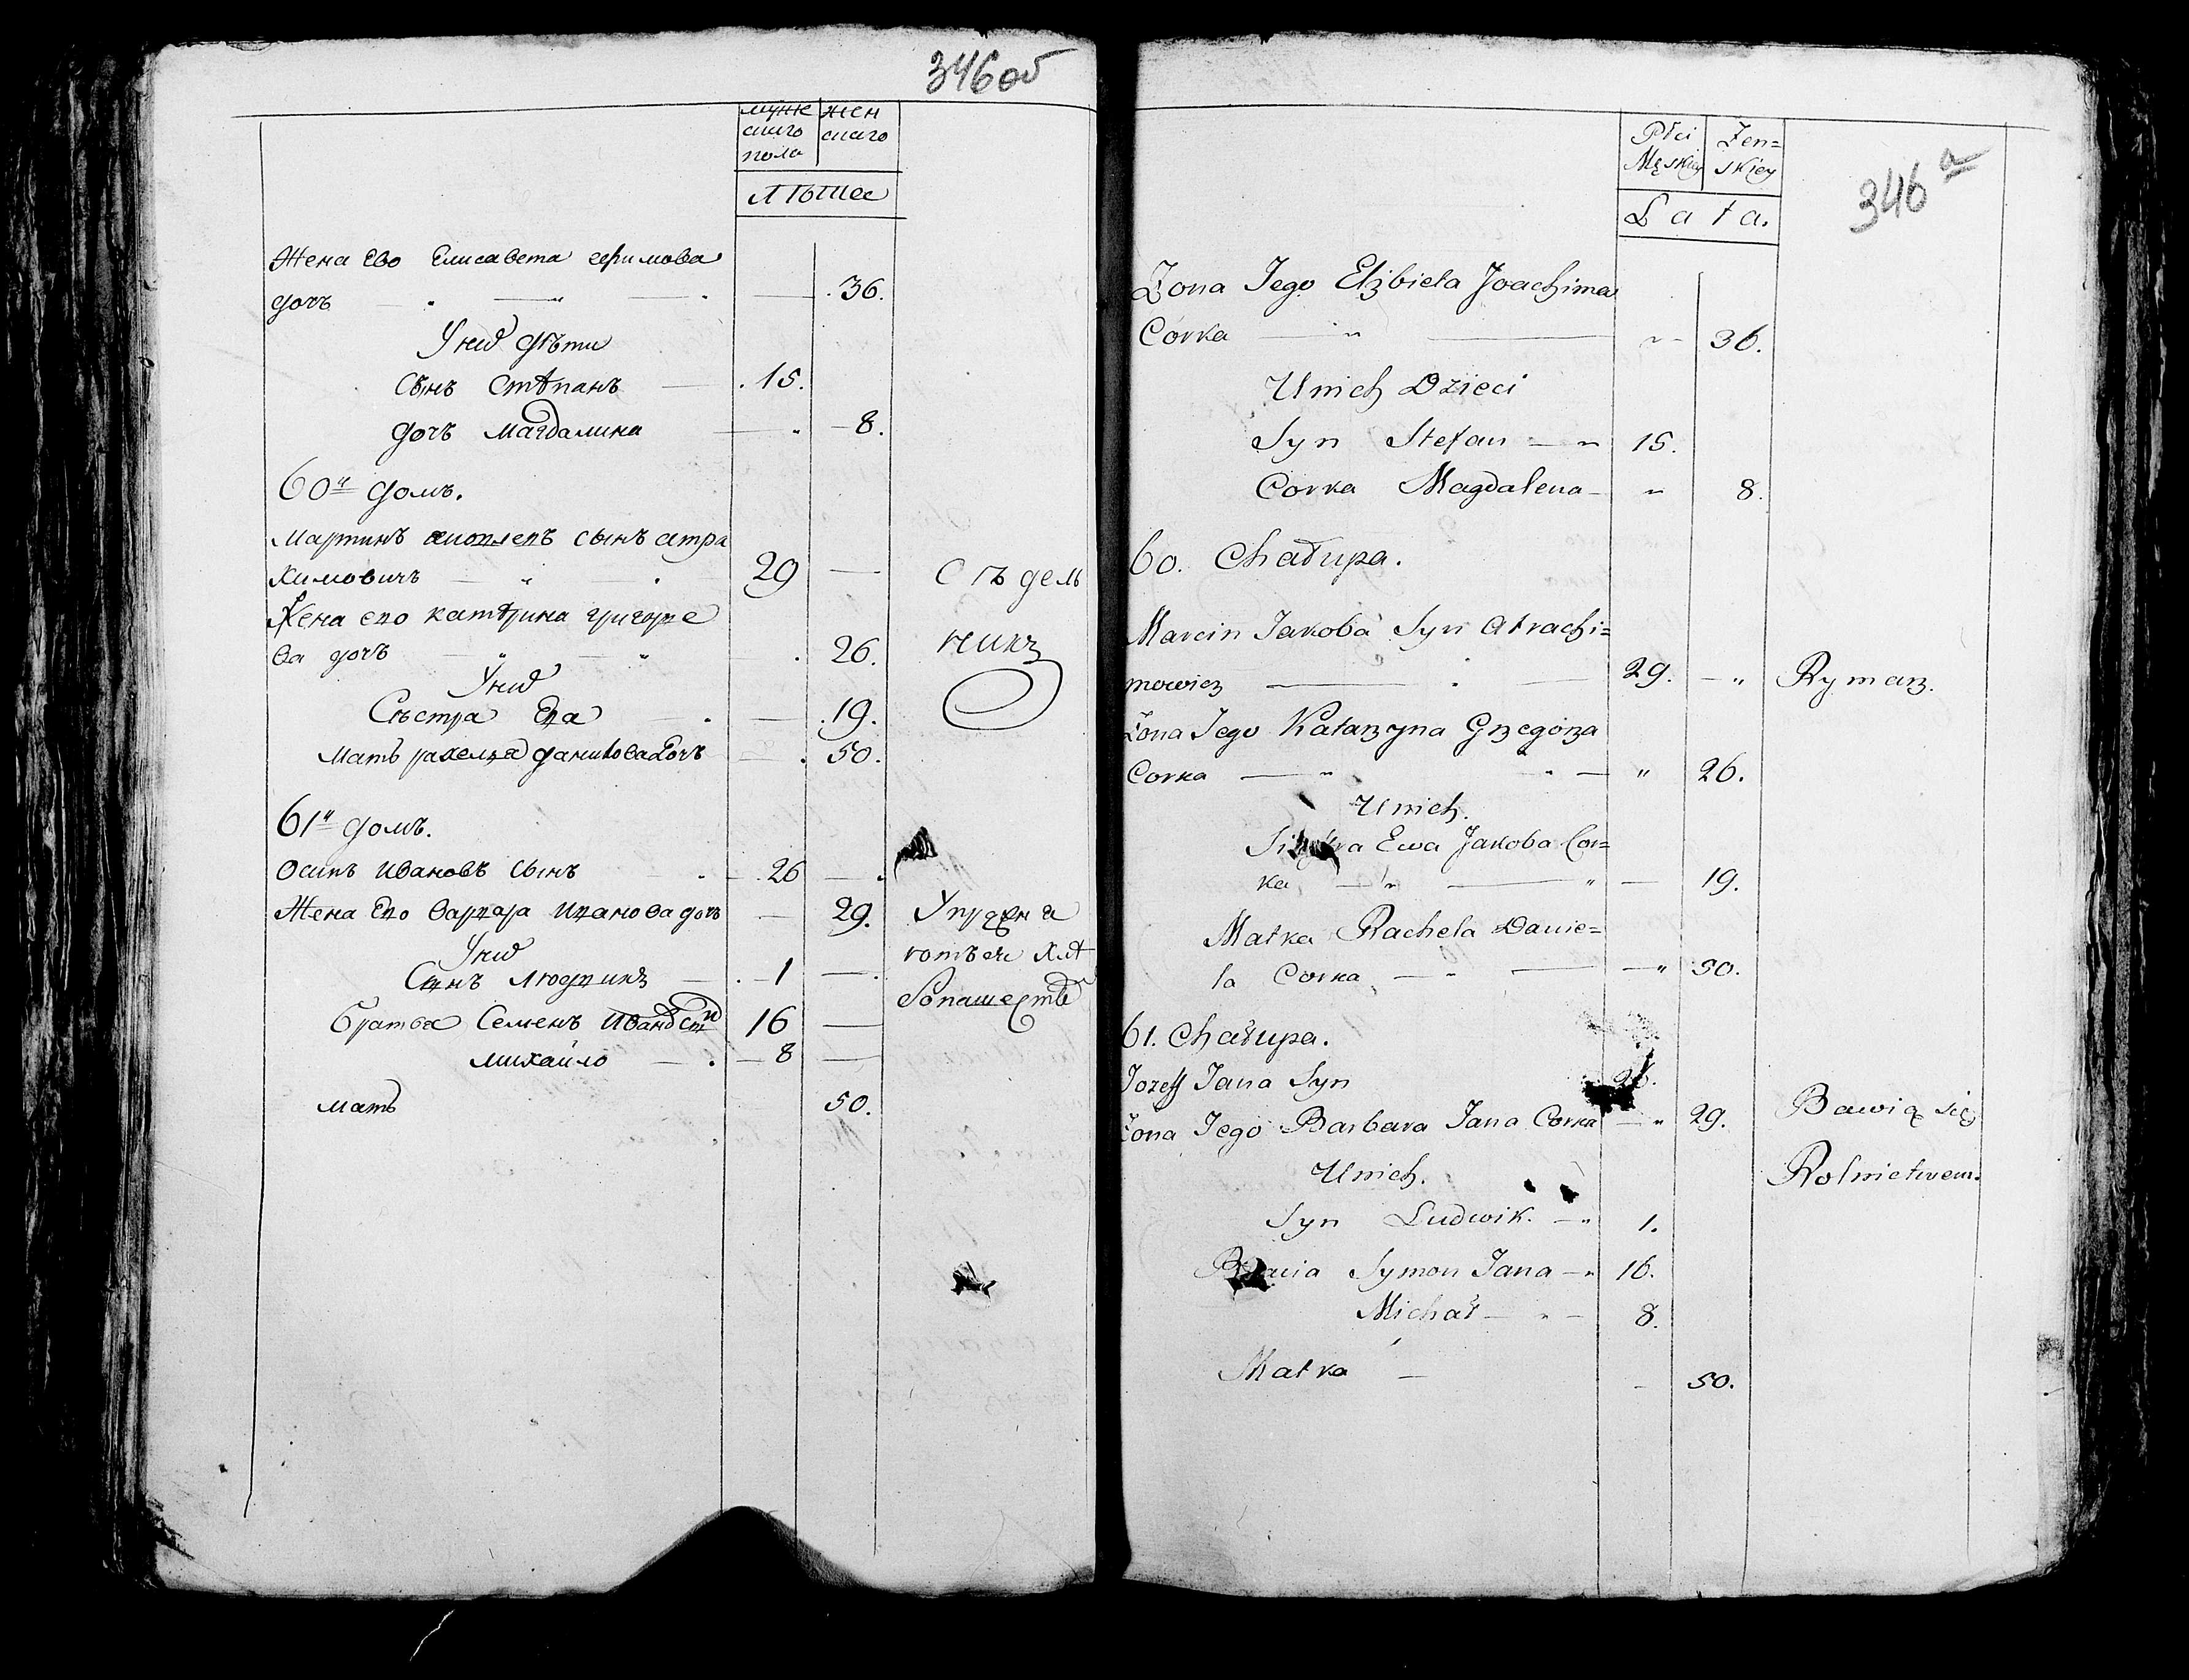 346об
муже
скаго
пола
жен
скаго
Лѣтее
Жена Ево Елисавета
дочь 36.
У них дѣти
Сынъ Стѣпанъ 15.
дочь Магдалина 8.
60й домъ.
Мартинъ сынъ атра
химовичъ 29
Жена ево катѣрина григорье
ва дочь 26.
У них
Сѣстра Ева 19.
Мать рахеля данилова дочь 50.
Сѣдель
никъ
61й домъ.
Осипъ Ивановъ Сынъ 26
Жена Ево Варвара Иванова дочь 29.
У них
Сынъ Людвикъ 1
братья Семенъ 16
михайло 8
мать 50.
хлѣ
бопашеств
346а
Płci
Męskiey
Żeń=
skiey
Lata.
Żona Jego Elżbieta Joachima
Córka 36.
U nich Dzieci
Syn Stefan 15.
Corka Magdalena 8.
60. Chałupa.
Marcin Jakoba Syn Atrachi=
mowicz 29. Rymarz.
Żona Jego Katarzyna Grzegorza
Corka 26.
U nich.
Siostra Ewa Jakoba Cor=
ka 19.
Matka Rachela Danie=
la Corka 50.
61. Chałupa.
Jozeff Jana Syn 26.
Żona Jego Barbara Jana Corka 29.
Bawią się
Rolnictwem.
U nich.
Syn Ludwik. 1.
Bracia Symon Jana 16.
Michał 8.
Matka 50.